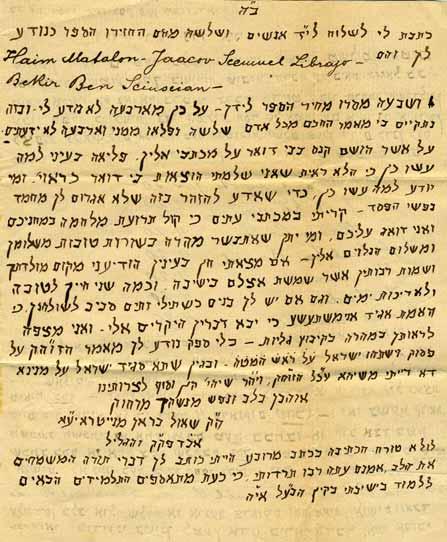 ב"ה
כתבת לי לשלוח לי"ד אנשים, ושלשה מהם החזירו הספר כנודע
לך והם
Haim Matalon - Jaacov Scemuel Librajo -
Bekir Ben Sciuscian -
ושבעה מסרו מחיר הספר לידך - על כן מארבעה לא נודע לי. ובזה
נתקיים בי מאמר החכם מכל אדם שלשה נפלאו ממני וארבעה לא ידעתים
על אשר הושם קנס בבי דואר על מכתבי אליך, פליאה בעיני למה
עשו כן, כי הלא ראית שאני שלמתי הוצאות בי דואר כראוי, ומי
יודע למה עשו כן, כדי שאדע להזהר בזה שלא אגרום לך מחמד
נפשי הפסד - קריתי במכתבי עתים כי קול תרועת מלחמה במחניכם
ואני דואג עליכם, ומי יתן שאתבשר מהרה בשורות טובות משלומך
ומשלום הנלוים אליך - אם מצאתי חן בעיניך הודיעני מקום מולדתך
ושמות רבותיך אשר שמשת אצלם בישיבה, וכמה שני חייך לטובה
ולאריכות ימים, וגם אם יש לך בנים כשתילי זתים סביב לשולחנך, כי
האמת אגיד אשתעשע כי יבא דבריך היקרים אלי - ואני מצפה
לראותך במהרה בקיבוץ גליות - בלי ספק נודע לך מאמר הזוה"ק על
פסוק וישתחו ישראל על ראש המטה - ובגין שתא סגיד ישראל על
דא רייתי משיחא עכ"ל הזוה"ק, ויה"ר שיהי' כן וסוף לצרותינו
אוהבך בלב ונפש מנשקך מרחוק
הק' שאול בראן מנייטרא יע"א
אבד פק"ק והגליל
לולא טורח הכתיבה בכתב מרובע הייתי כותב לך דברי תורה המשמחים
את הלב, אמנם עתה רבו טרדותי, כי כעת מתאספים התלמידים הבאים
ללמוד בישיבתי בקיץ הבעל אי"ה